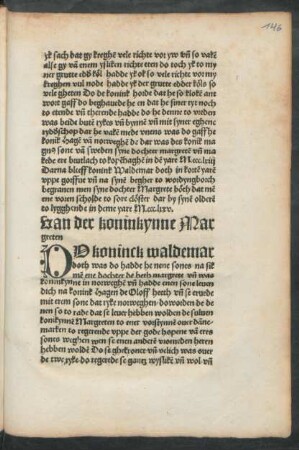 146
yk sach dat gy kreghe vele richte vor yw vñ so vakē
alse gy vā enem ysliken richte eten do toch yk to my
ner grutte edd̄ kōl hadde yk ok so vele richte vor my
kreghen vul node hadde yk der grutte edder kōls so
vele gheten Do de konink horde dat he so klokē ant
wort gaff do beghaude he en dat he siner tyt noch
to etende vñ therende hadde do he denne to vreden
was beide butē rykes vñ bynnē vñ mit syner eghene
rydōschop dat he vakē mede vnens was do gaff he
konik Hagē vā norweghē de dar was der konik ma
gnꝰ sone vā sweden syne dochter margretē vñ ma
kede ere brutlacht to kopēhaghē in dē yare M.ccc.lxiij
Darna bleeff konink Waldemar doth in kortē yarē
vppe gosstrue vñ na synē begher to wordynghborch
begrauen men syne dochter Margrete bōeth dat mē
ene voren scholde to sore clōster dar by synē oldrē
to lygghende in deme yare M.ccc.lxxv.
Van der koninkynne Mar
greten
DO koninck waldemar
doth was do hadde he nene sones na sik
mē ene dochter de heth margrete vñ was
koninkynne in norweghē vñ hadde enen sone leuen
dich na konink Hagen de Oloff heeth vñ se eruede
mit erem sone dat ryke norweghen do worden de de
nen so to rade dat se leuer hebben wolden de suluen
konikynnē Margreten to ener vorstynnē ouer dāne
marken to regerende vppe der gode hopene vā eres
sones weghen wen se enen anderē vromeden heren
hebben woldē Do se ghekorrer vñ velich was ouer
de twe ryke do regerede se gantz wyslikē vñ wol vñ